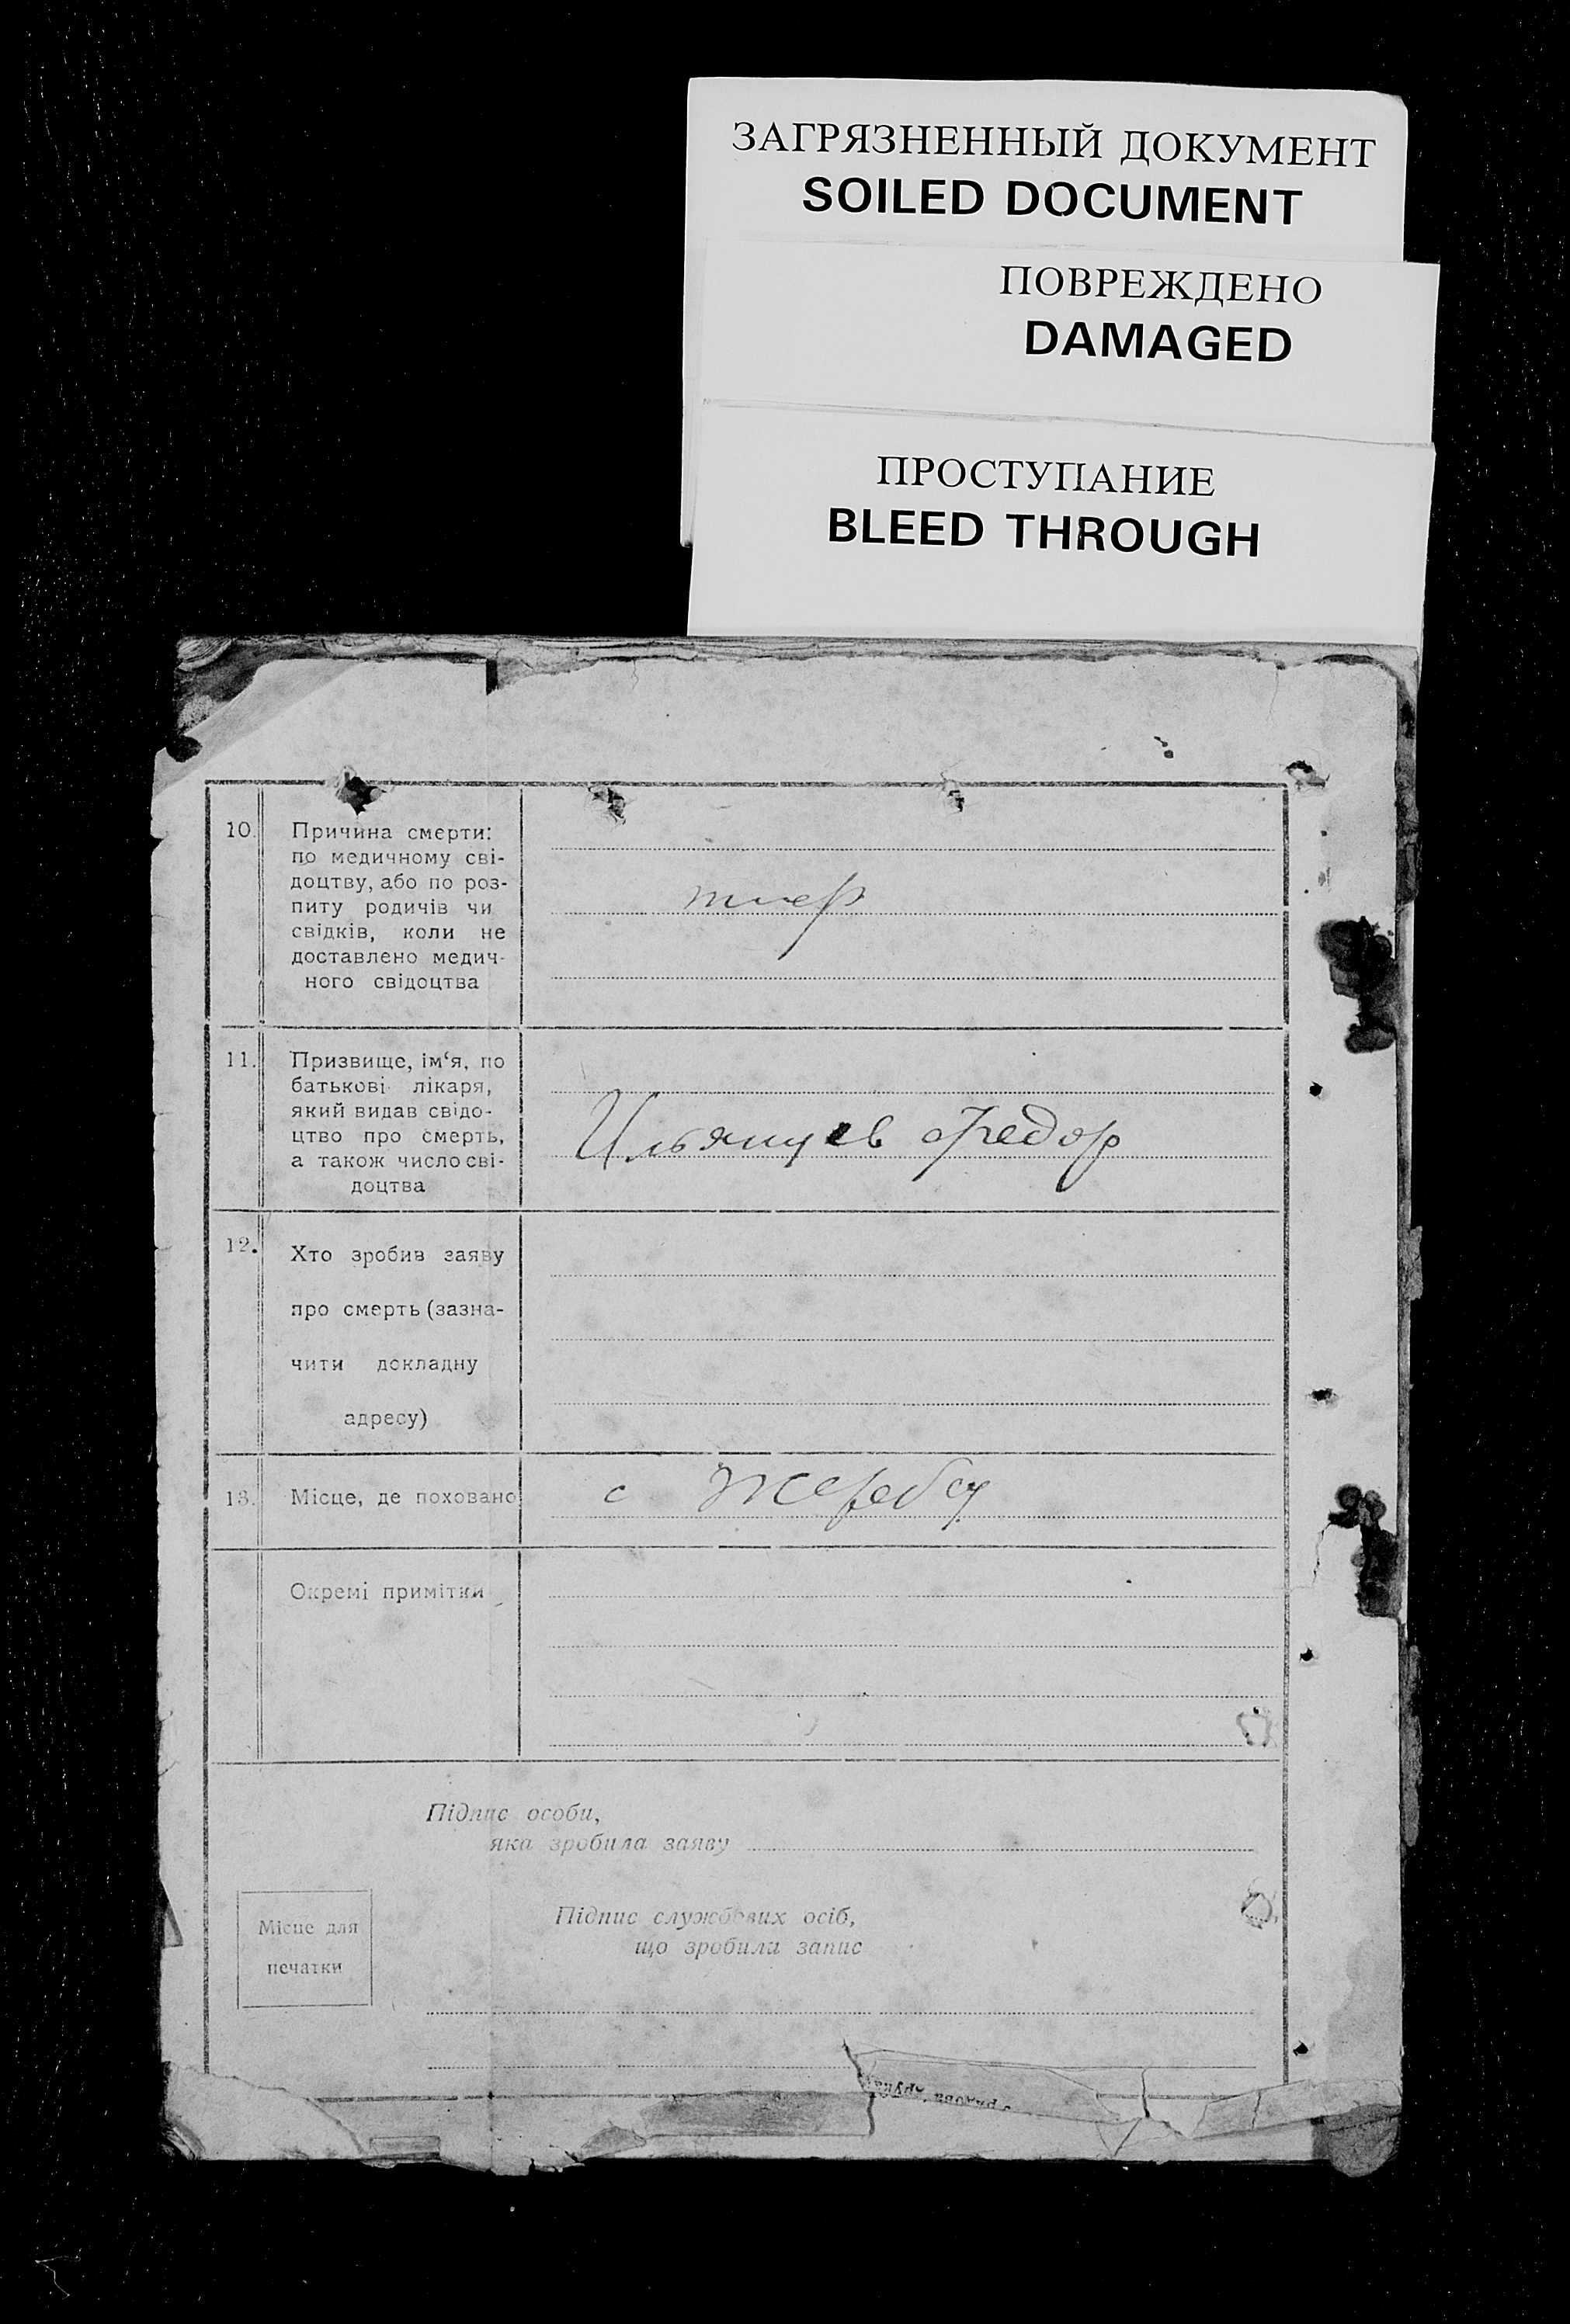 ЗАГРЯЗНЕННЫЙ ДОКУМЕНТ
SOILED DOCUMENT
ПОВРЕЖДЕНО
DAMAGED
ПРОСТУПАНИЕ
BLEED THROUGH
10. Причина смерти:
по медичному сві-
доцтву, або по роз-
питу родичів чи
свідків, коли не
доставлено медич-
ного свідоцтва
тиер
11. Призвище, ім‘я, по
батькові лікаря,
який видав свідо-
цтво про смерть,
а також число сві-
доцтва
Ильянцев Федор
12. Хто зробив заяву
про смерть (зазна-
чити докладну
адресу)
13. Місце, де поховано
с Жеребец
Окремі примітки
Підпис особи,
яка зробила заяву
Місце для
печатки
Підпис службових осіб,
що зробили запис